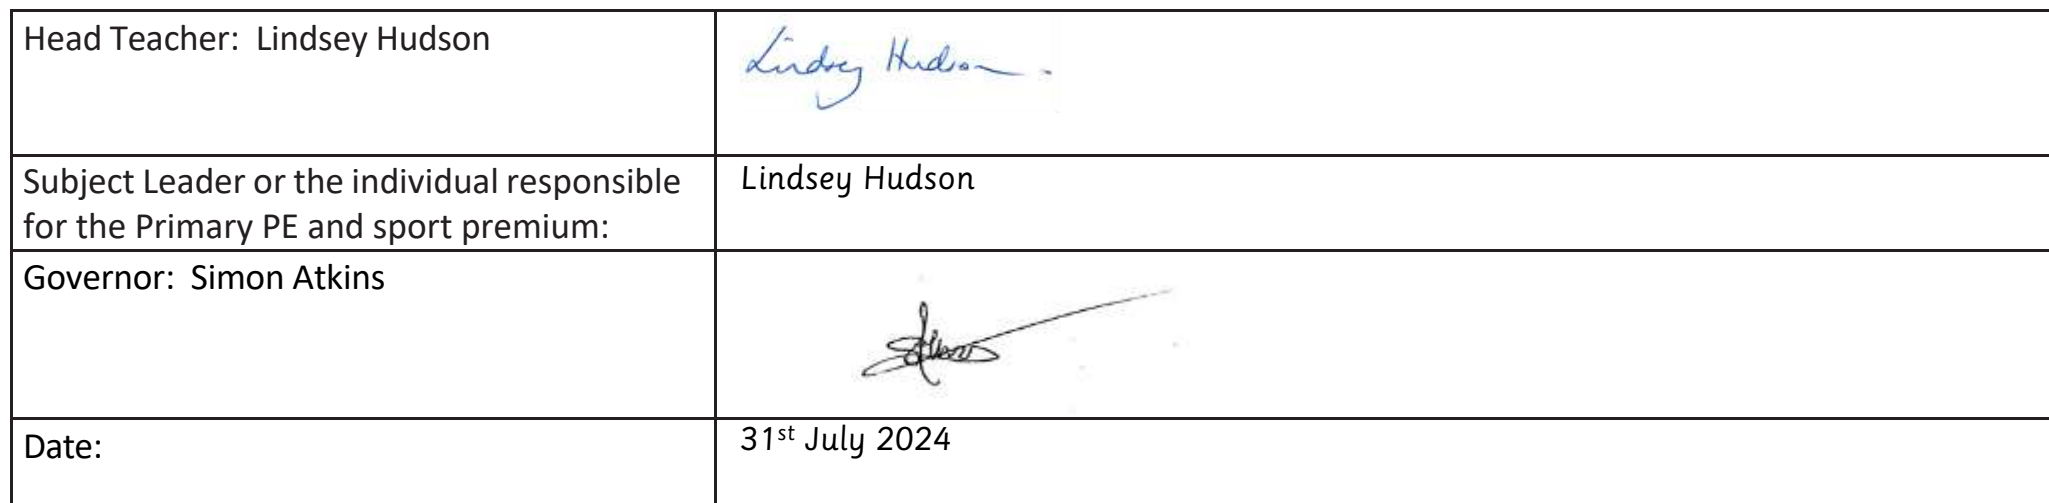 Head Teacher:  Lindsey Hudson
Lindsey Hudson
Subject Leader or the individual responsible
for the Primary PE and sport premium:
Lindsey Hudson
Governor:  Simon Atkins
Date:
31st July 2024